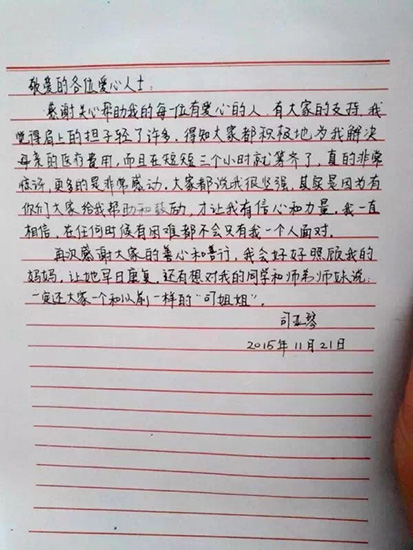 敬爱的各位爱心人士:
感谢关心帮助我的每一位有爱心的人,有大家的支持,我
觉得肩上的担子轻了许多,得知大家都积极地为我解决
母亲的医疗费用,而且在短短三个小时就筹齐了,真的非常
惊讶,更多的是非常感动。大家都说我很坚强,其实是因为有
你们大家给我帮助和鼓励,才让我有信心和力量。我一直
相信,在任何时候有困难都不会只有我一个人面对。
再次感谢大家的善心和善行,我会好好照顾我的
妈妈,让她早日康复,还有想对我的同学和师弟师妹说:
一定还大家一个和以前一样的“司姐姐”。
司亚琴
2015年11月21日